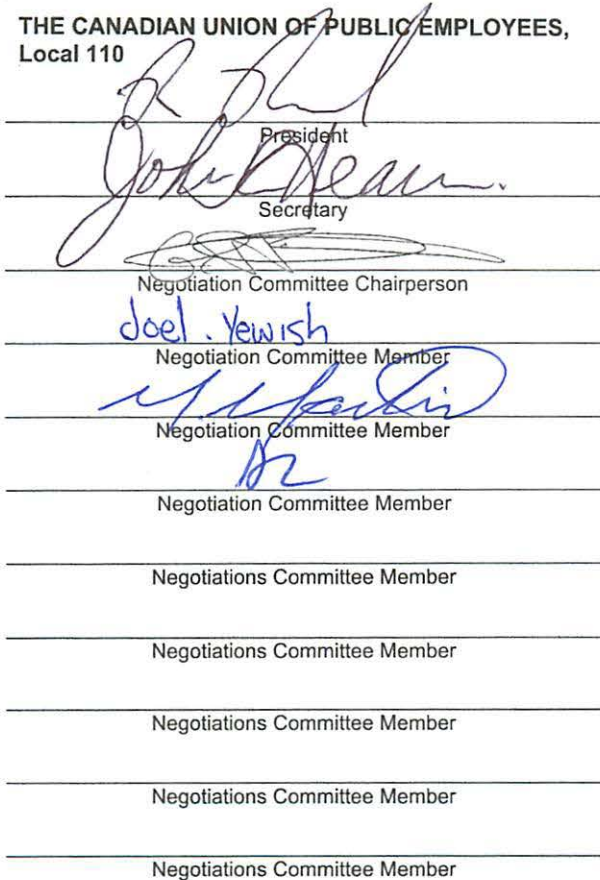 THE CANADIAN UNION OF PUBLIC EMPLOYEES,
Local 110
President
John
Secretary
Negotiation Committee Chairperson
Joel . Yewish
Negotiation Committee Member
Negotiation Committee Member
Negotiation Committee Member
Negotiations Committee Member
Negotiations Committee Member
Negotiations Committee Member
Negotiations Committee Member
Negotiations Committee Member